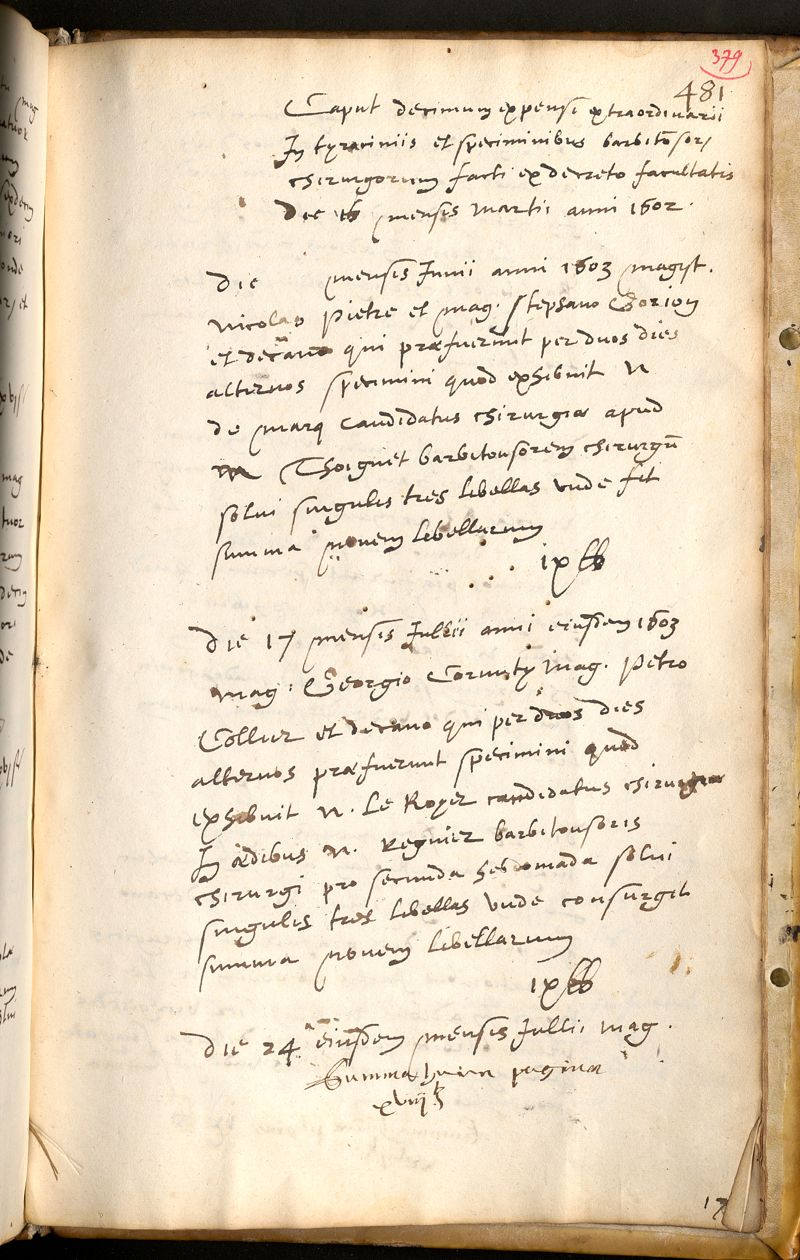 379
481
Caput decimum expensi extraordinarii
In tyrociniis et speciminibus barbitonsor/
chirurgorum facti ex decreto facultatis
Die mensis Martii anni 1602.
die mensis Junii anni 1603 magist.
Nicolao Pietre et mag. Stephano Gorion
et decano qui præfuerunt per duos dies
alternos specimini quod exhibuit N
de Marq candidatus chirurgiæ apud
M Thoignet barbitonsorem chirurgū
solui singulis tres libellas unde fit
summa novem libellarum
ix ℔
Die 17 mensis Jullii anni eiusdem 1603
Mag. Georgio Cornuty Mag. Petro
Collier et decano qui per duos dies
alternos præfuerunt specimini quod
exhibuit N. Le Royer candidatus chirurgiæ
In ædibus N. Regnier barbitonsoris
chirurgi pro secunda hebdomada solui
singulis tres libellas unde consurgit
summa novem libellarum
ix ℔
Die 24 eiusdem mensis Jullii mag.
Summa huius paginæ
xviij ℔
17